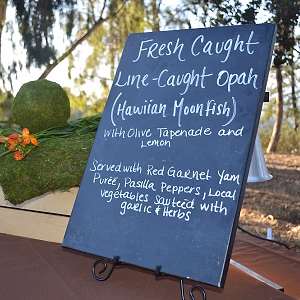 Fresh Caught
Line-Caught Opah
(Hawiian Moon Fish)
with Olive Tapenade and
Lemon
Served with Red Garnet Yam
Purée, Pasilla Peppers, Local
vegetables sauteed with
garlic & Herbs